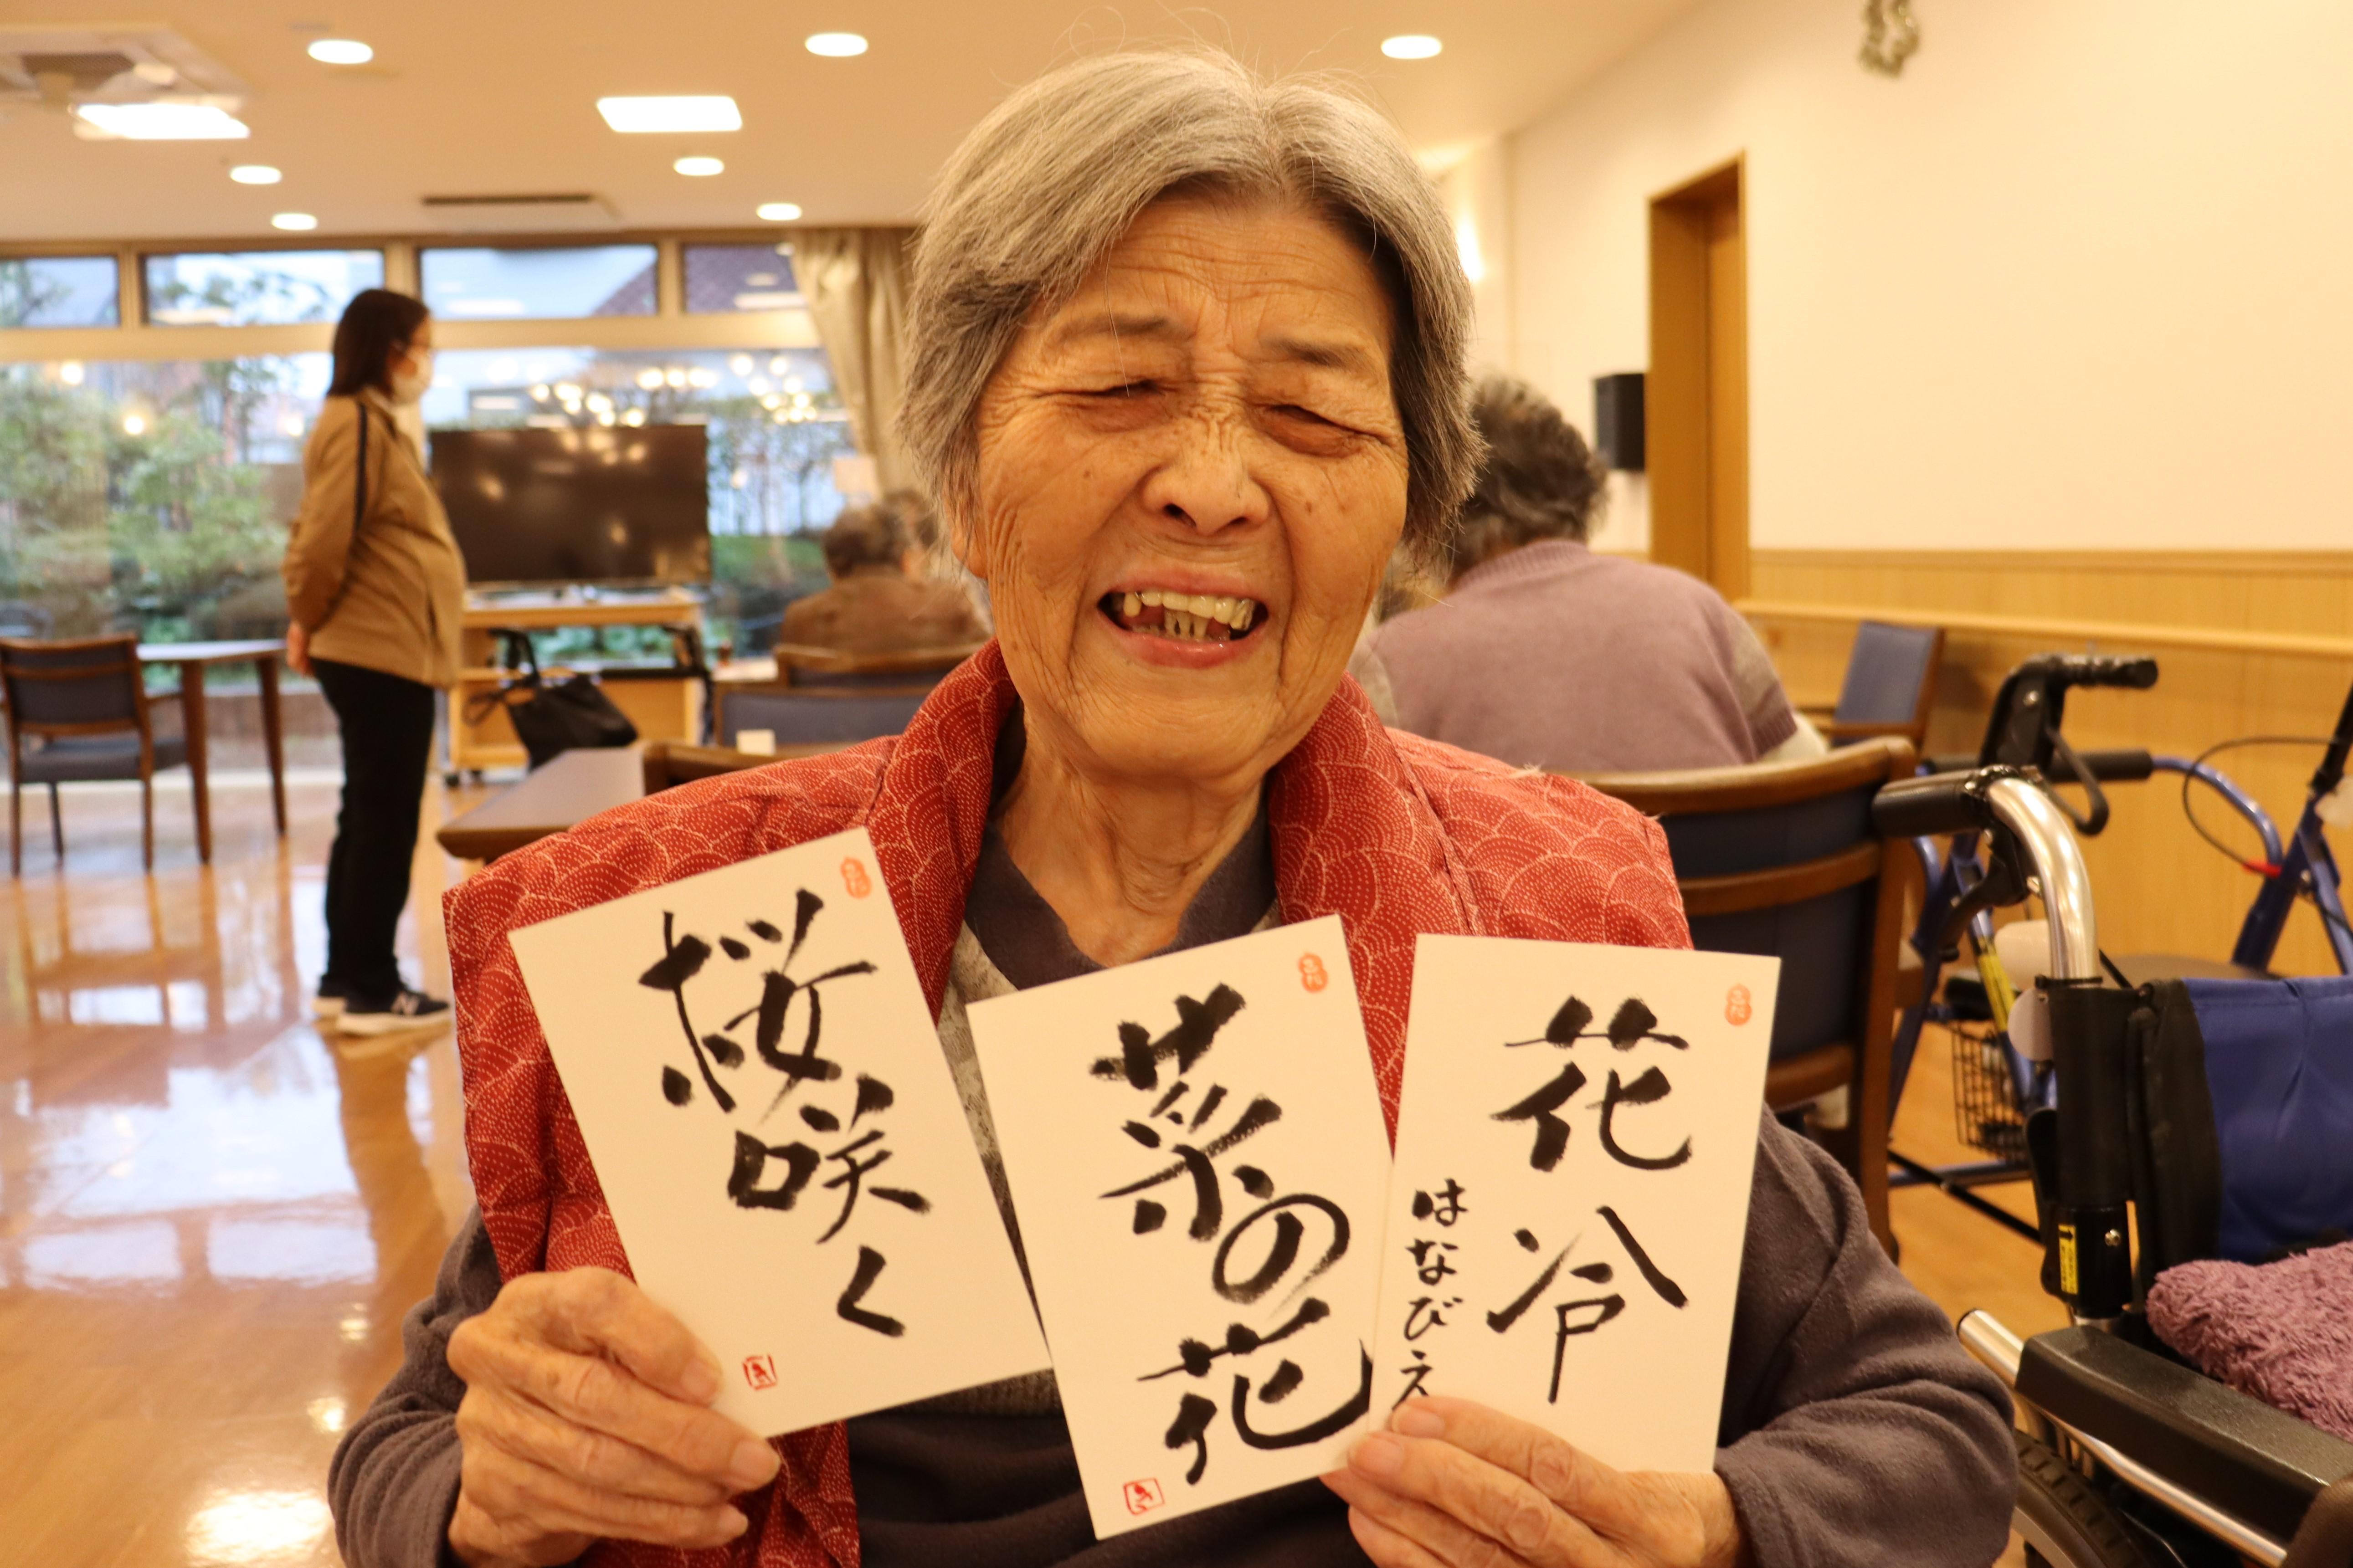 桜咲く
菜の花
花冷
はなびえ